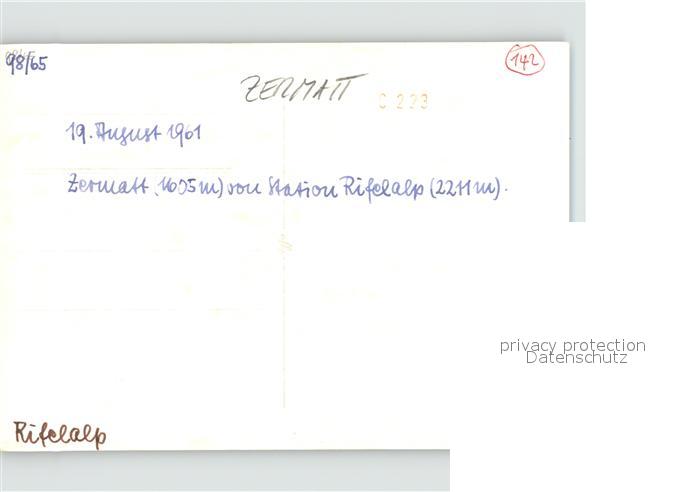 98/65
142
ZERMATT
C 223
19. August 1961
Zermatt (1605m) von Station Rifelalp (2211m).
privacy protection
Datenschutz
Rifelalp